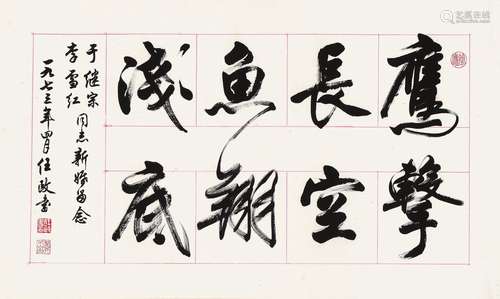 鹰擊
長空
魚翔
浅底
于继宗
李雪红同志新婚留念
一九七三年四月任政书